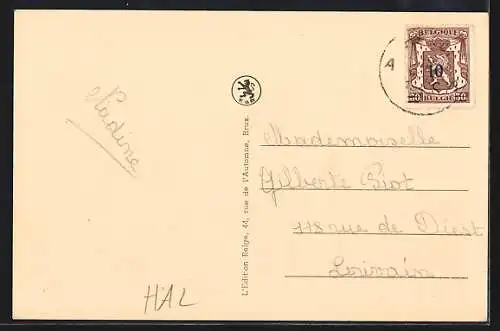 BELGIQUE
10
BELGIE
A
Nadine
Mademoiselle
Gilberte Piot
118 rue de Diest
Louvain
L'Edition Belge, 44, rue de l'Automne, Brux.
HAL